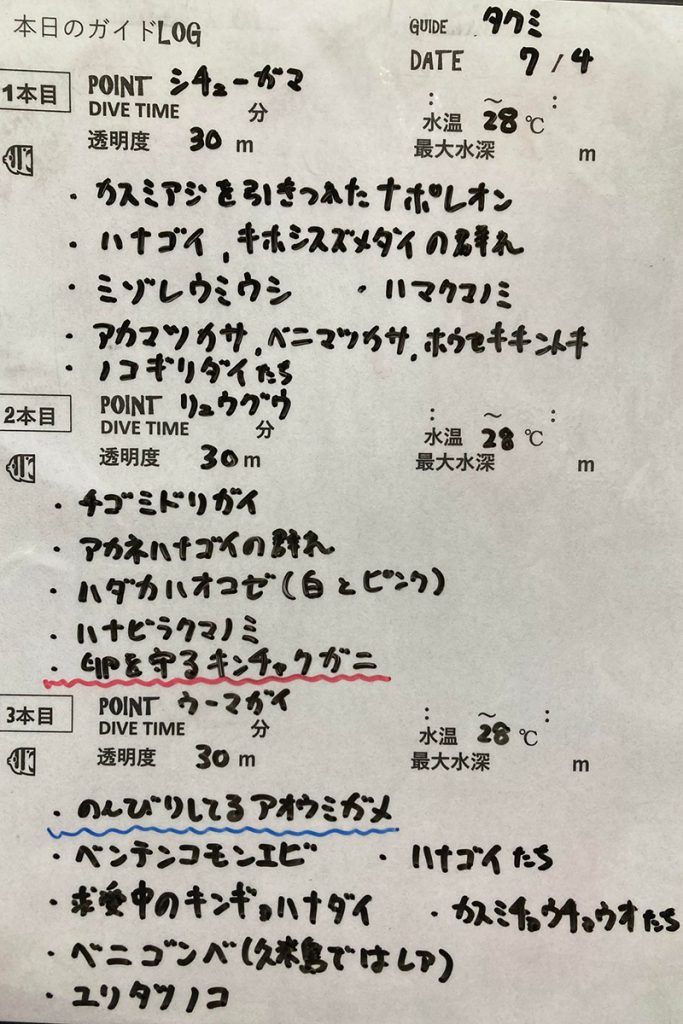 本日のガイドLOG GUIDE タクミ
DATE 7/4
1本目 POINT シチューガマ : 〜 :
DIVE TIME 分 水温 28℃
透明度 30m 最大水深 m
・カスミアジを引きつれたナポレオン
・ハナゴイ,キホシスズメダイの群れ
・ミゾレウミウシ ・ハマクマノミ
・アカマツカサ,ベニマツカサ,ホウセキキントキ
・ノコギリダイたち
2本目 POINT リュウグウ : 〜 :
DIVE TIME 分 水温 28℃
透明度 30m 最大水深 m
・チゴミドリガイ
・アカネハナゴイの群れ
・ハダカハオコゼ(白とピンク)
・ハナビラクマノミ
・卵を守るキンチャクガニ
3本目 POINT ウーマガイ : 〜 :
DIVE TIME 分 水温 28℃
透明度 30m 最大水深 m
・のんびりしてるアオウミガメ
・ベンテンコモンエビ ・ハナゴイたち
・求愛中のキンギョハナダイ ・カスミチョウチョウオたち
・ベニゴンベ(久米島ではレア)
・ユリタツノコ